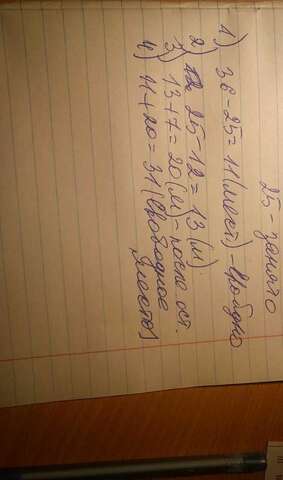 25 - занято
1) 36-25=11(мест) - свободно
2) 25-12=13 (м)
3) 13+7=20(м) - после ост.
4) 11+20=31(свободное
место)